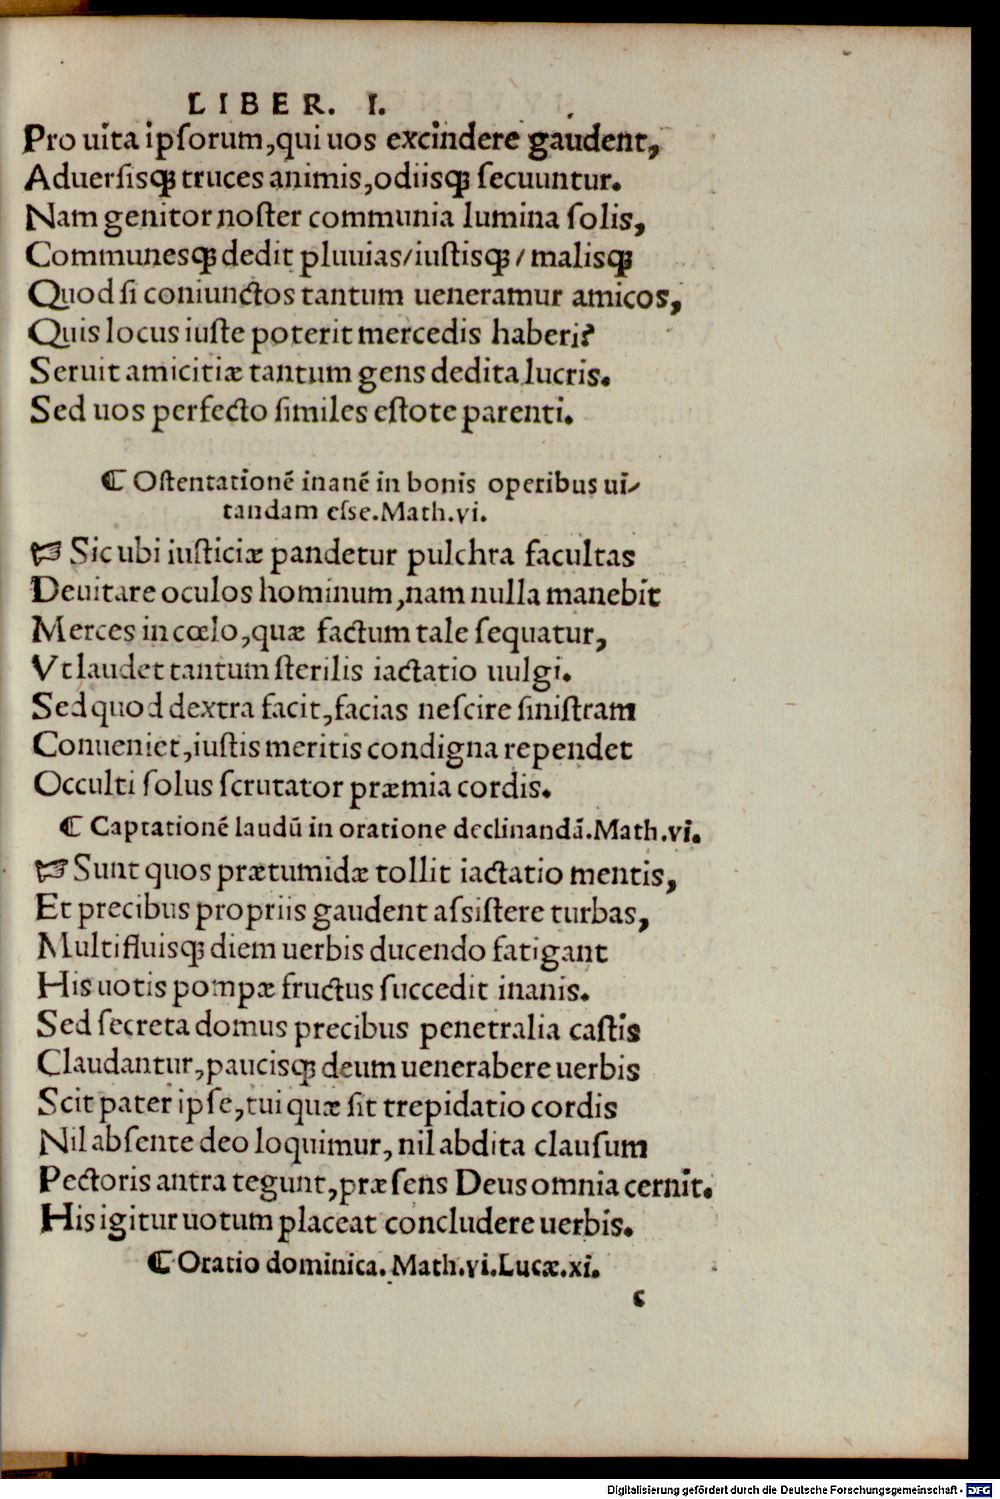 LIBER. I.
Pro uita ipſorum,qui uos excindere gaudent,
Aduerſisq; truces animis,odiisq; ſecuuntur.
Nam genitor noſter communia lumina ſolis,
Communesq; dedit pluuias/iustisq; / malisq;
Quod ſi coniunctos tantum ueneramur amicos,
Quis locus iuſte poterit mercedis haberi?
Seruit amicitiæ tantum gens dedita lucris.
Sed uos perfecto ſimiles eſtote parenti.
¶ Oſtentationē inanē in bonis operibus ui⸗
tandam eſſe.Math.vi.
☞ Sic ubi iuſticiæ pandetur pulchra facultas
Deuitare oculos hominum,nam nulla manebit
Merces in cœlo,quæ factum tale ſequatur,
Vt laudet tantum ſterilis iactatio uulgi.
Sed quod dextra facit,facias neſcire ſiniſtram
Conueniet,iuſtis meritis condigna rependet
Occulti ſolus ſcrutator præmia cordis.
¶ Captationē laudū in oratione declinandā.Math.vi.
☞ Sunt quos prætumidæ tollit iactatio mentis,
Et precibus propriis gaudent aſsiſtere turbas,
Multifluisq; diem uerbis ducendo fatigant
His uotis pompæ fructus ſuccedit inanis.
Sed ſecreta domus precibus penetralia caſtis
Claudantur,paucisq; deum uenerabere uerbis
Scit pater ipſe,tui quæ ſit trepidatio cordis
Nil abſente deo loquimur, nil abdita clauſum
Pectoris antra tegunt,præſens Deus omnia cernit.
His igitur uotum placeat concludere uerbis.
¶ Oratio dominica. Math.vi.Lucæ.xi.
c
Digitalisierung gefördert durch die Deutsche Forschungsgemeinschaft - DFG